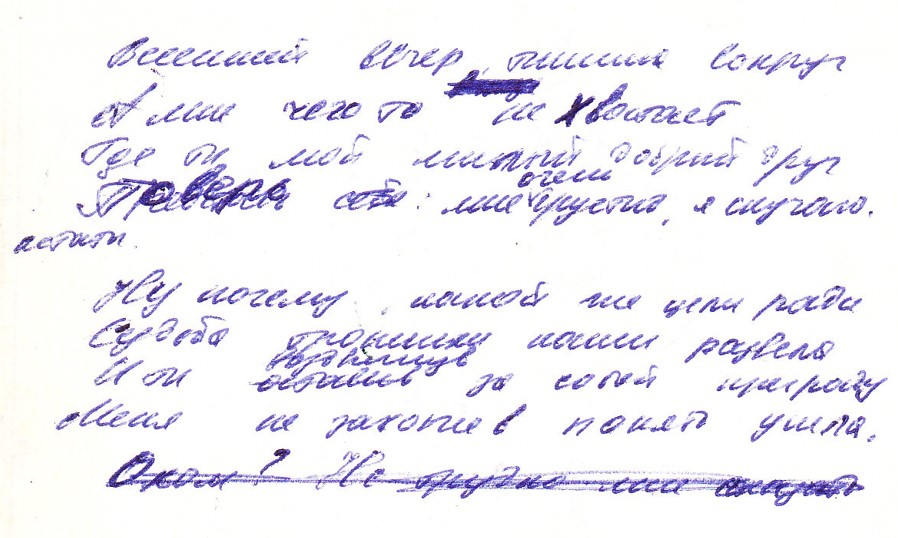 Весенний вечер, тишина вокруг
А мне чего то не хватает
Где ты мой милый добрый друг
Поверь: мне очень грустно, я скучаю.
кстати
Ну почему, какой же цели ради
Судьба тропинки наши развела
воздвигнув
И ты оставив за собой преграду
Меня не захотев понять ушла.
О ком? Не трудно мне сказать